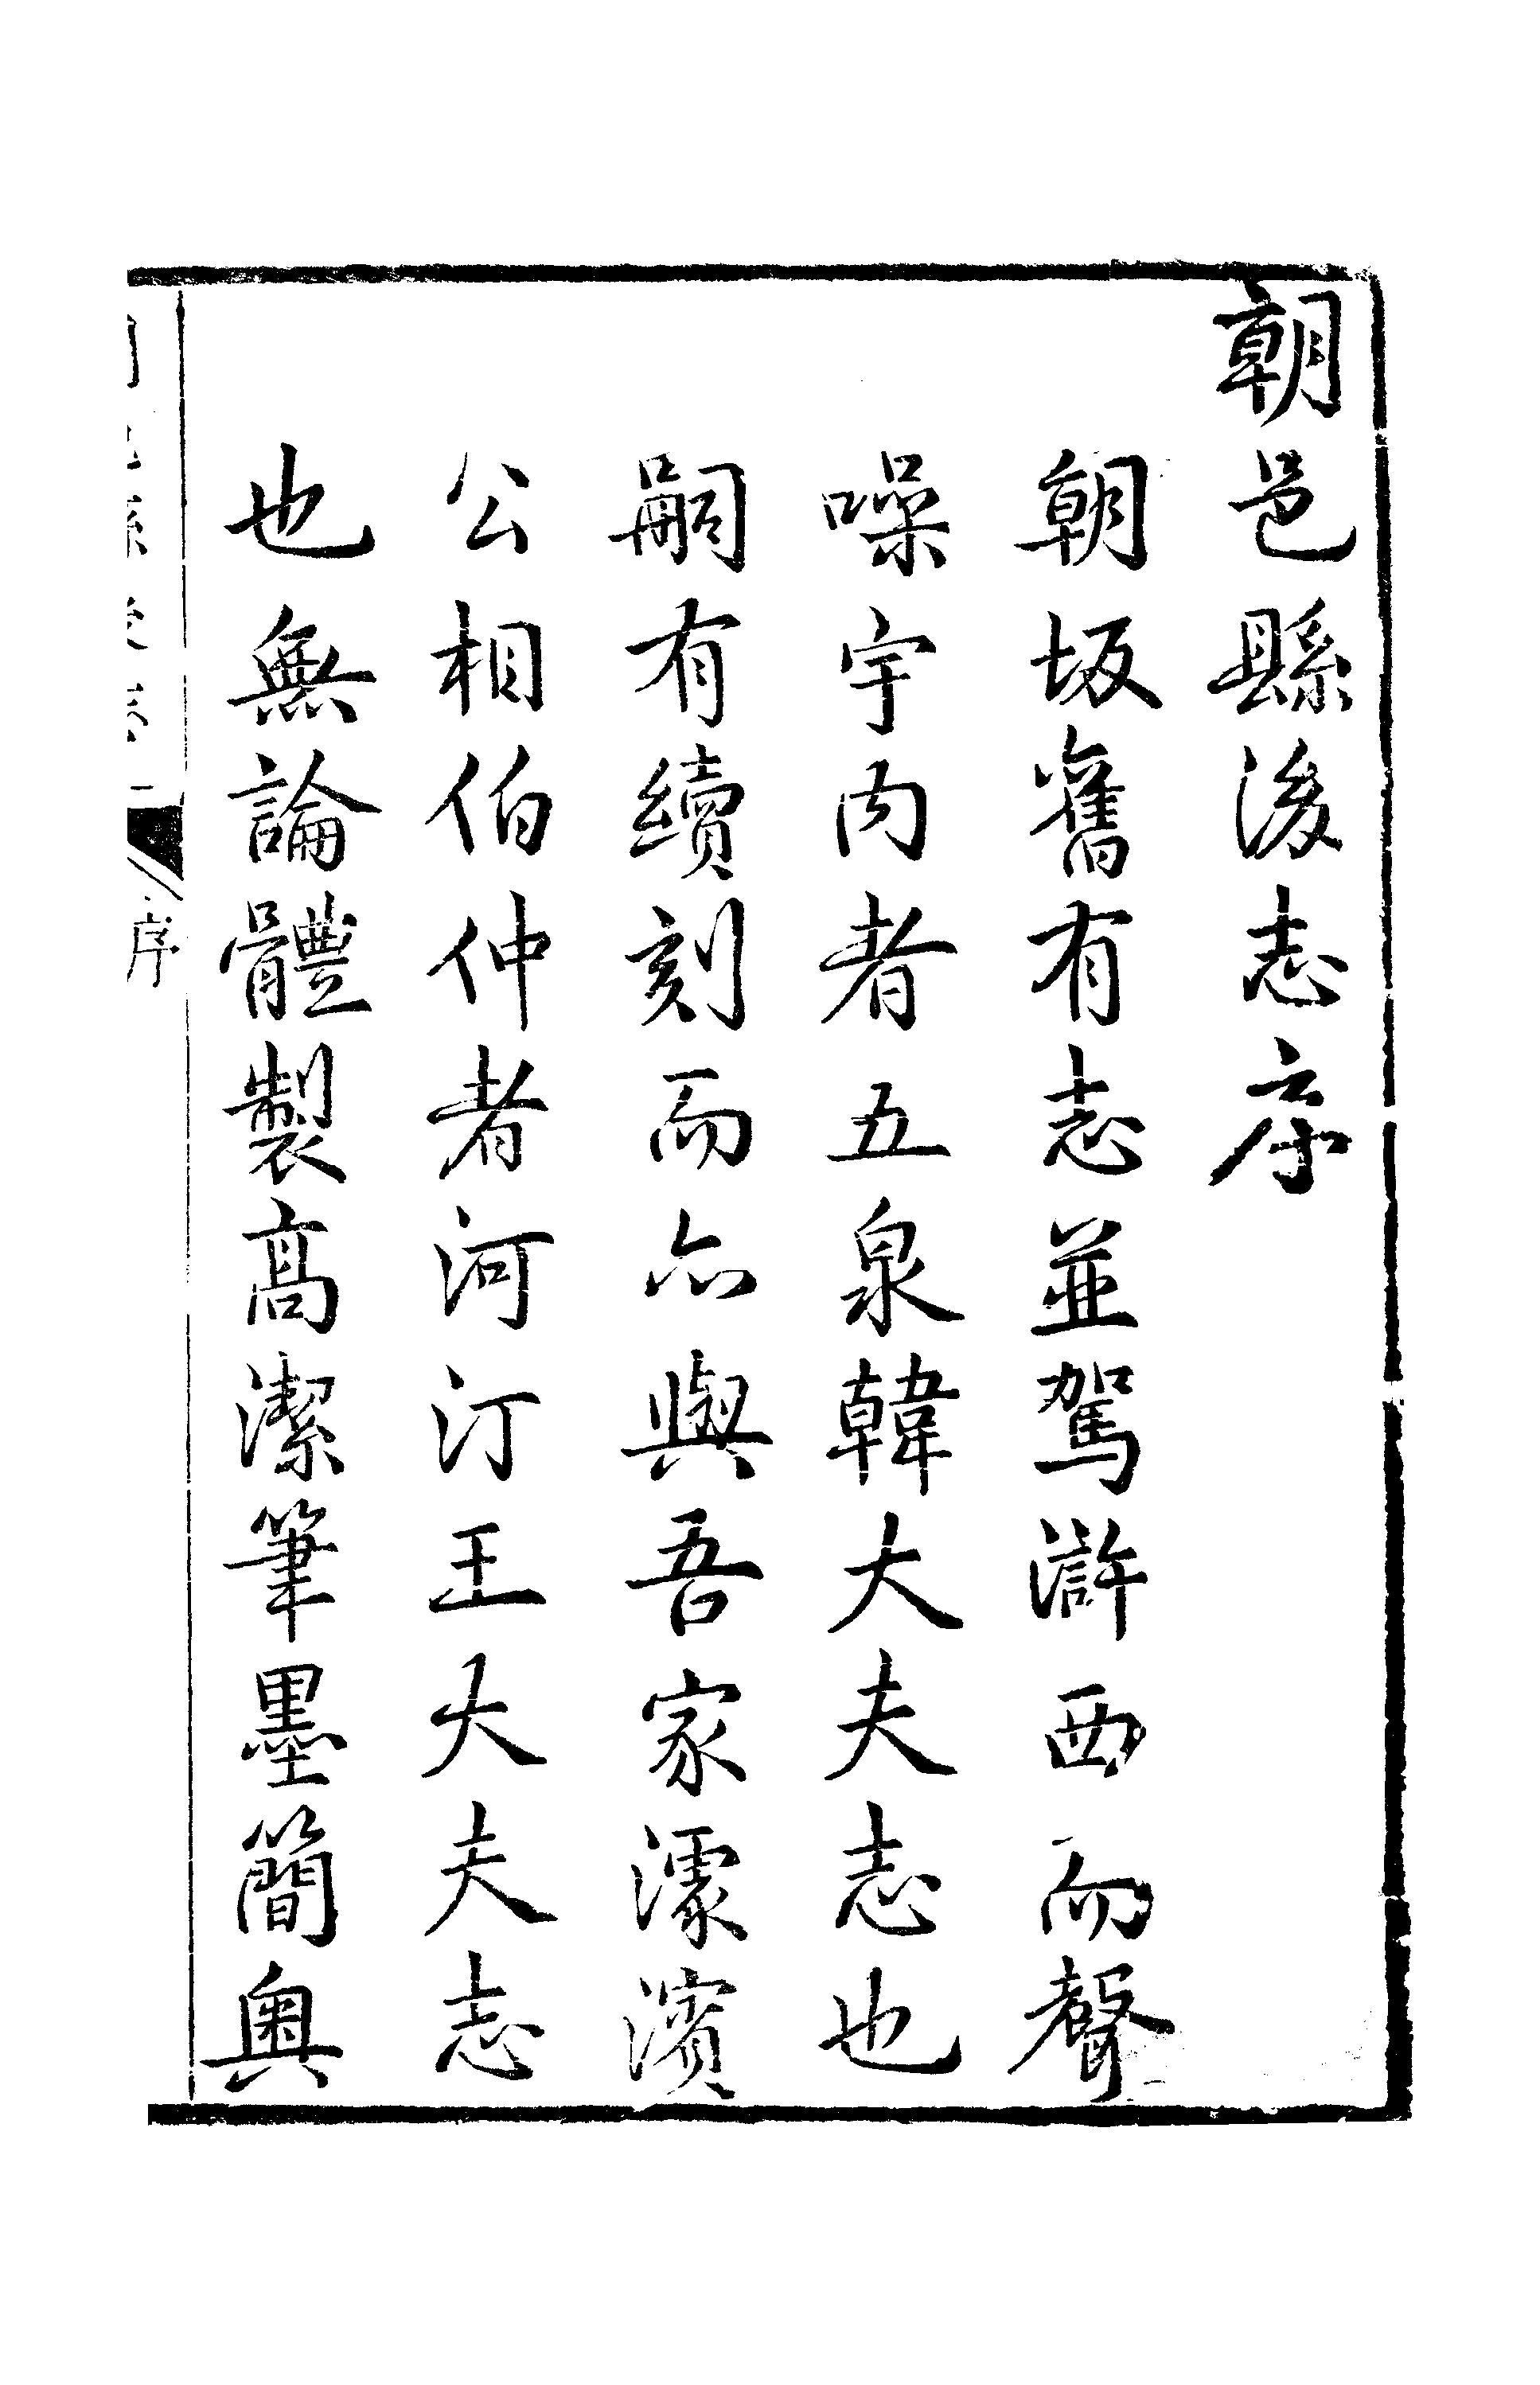 朝邑縣後志序
朝坂舊有志並駕滸西而聲
噪宇內者五泉韓大夫志也
嗣有續刻而亦與吾家濛濱
公相伯仲者河汀王大夫志
也無論體製高潔筆墨簡奧
序